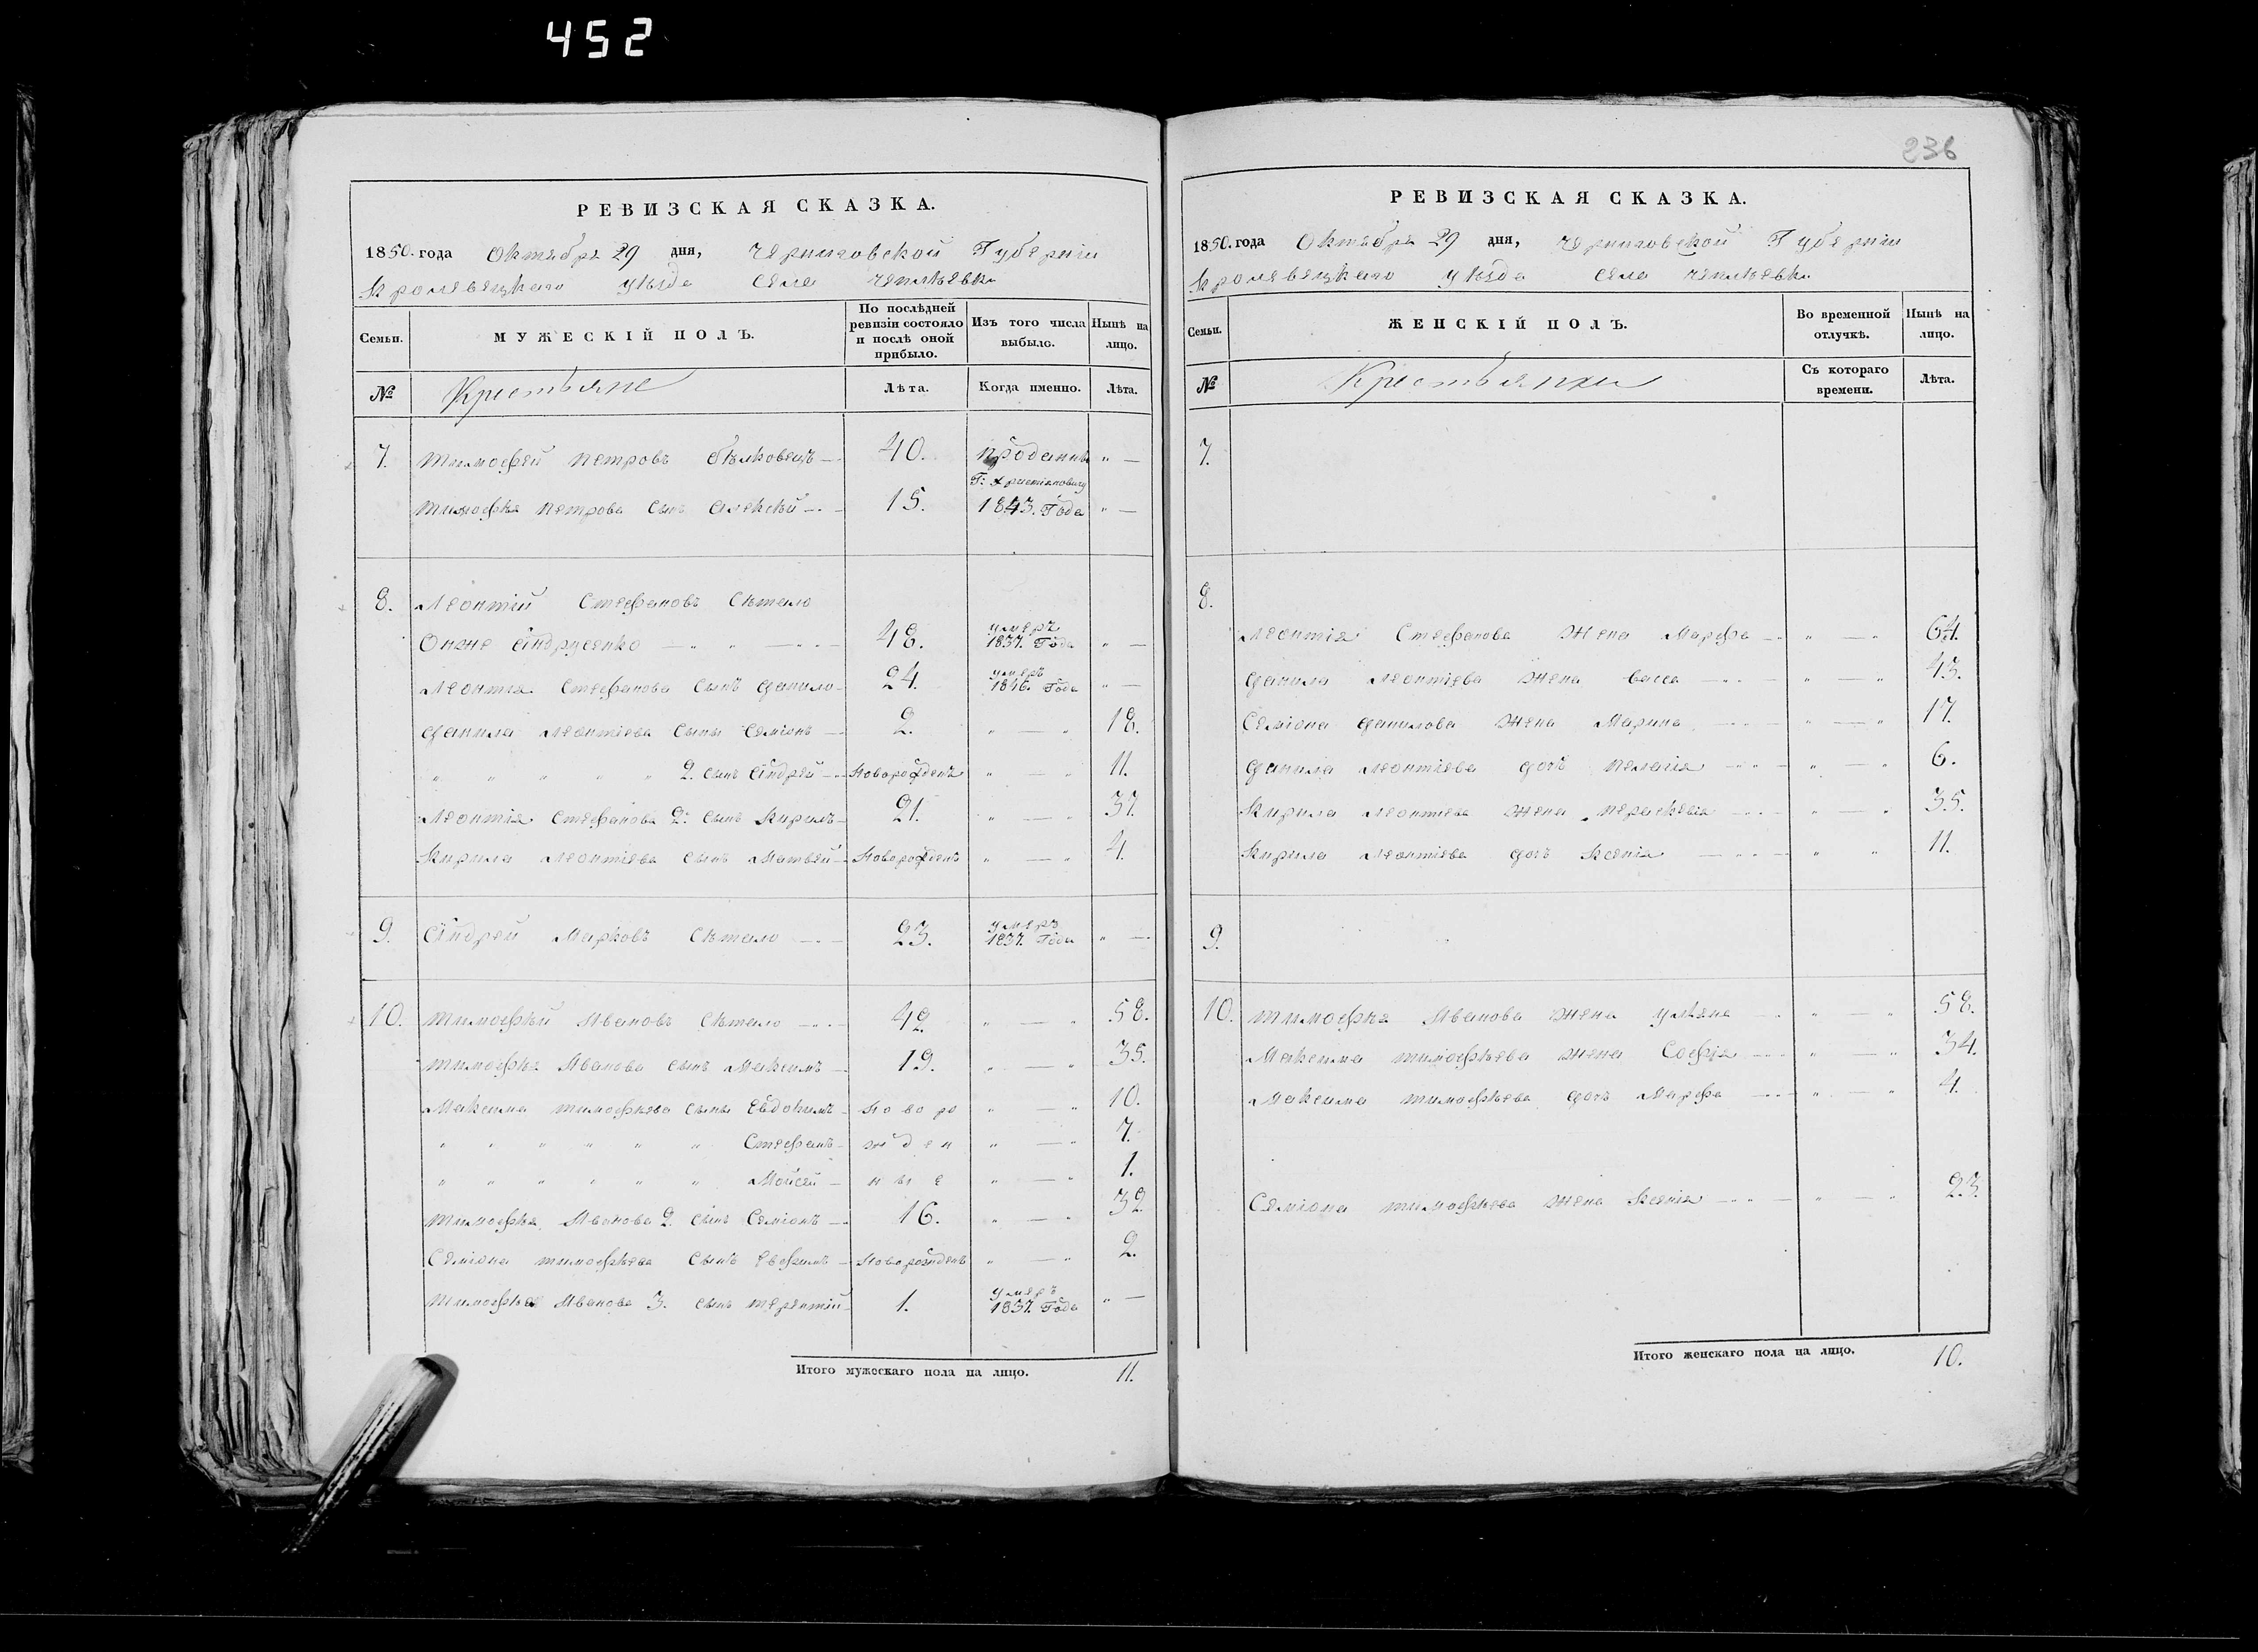 452
РЕВИЗСКАЯ СКАЗКА.
1850. года Октября 29 дня, Черниговской Губернии
Кролевецкаго уѣзда села Чеплѣевки
Семьи.
МУЖЕСКІЙ ПОЛЪ.
По послѣдней ревизіи состояло и послѣ оной прибыло.
Изъ того числа выбыло.
Нынѣ на лицо.
№ Крестьяне Лѣта. Когда именно. Лѣта.
7. Тимофей Петровъ Бѣлковецъ 40. проданны " —
Г: Христіановичу
Тимофея Петрова сынъ Алексѣй 15. 1843. Года " —
8. Леонтій Стефановъ Сѣтало
Онъ же Андрусенко 48. умеръ 1837. Года " —
Леонтія Стефанова сынъ Данило 24. умеръ 1846. Года " —
Данила Леонтіева сыны Семіонъ 2. " — " 18.
" " " " " 2. сынъ Андрей Новорожденъ " — " 11.
Леонтія Стефанова 2: сынъ Кирилъ 21. " — " 37.
Кирила Леонтіева сынъ Матвѣй Новорожденъ " — " 4.
9. Андрей Марковъ Сѣтало 23. умеръ 1837. Года " —
10. Тимофѣй Ивановъ Сѣтало 42. " — " 58.
Тимофѣя Иванова сынъ Максимъ 19. " — " 35.
Максима Тимофѣева сыны Евдокимъ Но во ро " — " 10.
" " " " " " Стефанъ ж д е н " — " 7.
" " " " " " Мойсей н ы е " — " 1.
Тимофѣя Иванова 2. сынъ Семіонъ 16. " — " 32.
Семіона Тимофѣева сынъ Ефимъ Новорожденъ " — " 2.
Тимофѣя Иванова 3. сынъ Терентій 1. умеръ 1837. Года " —
Итого мужескаго пола на лицо. 11.
236
РЕВИЗСКАЯ СКАЗКА.
1850. года Октября 29 дня, Черниговской Губерніи
Кролевецкаго уѣзда села Чеплѣевки
Семьи.
ЖЕНСКІЙ ПОЛЪ.
Во временной отлучкѣ.
Нынѣ на лицо.
№ Крестьянки Съ котораго времени. Лѣта.
7.
8.
Леонтія Стефанова жена Марфа " — " 64.
Данила Леонтіева жена Васса " — " 43.
Семіона Данилова жена Марина " — " 17.
Данила Леонтіева дочь Пелагія " — " 6.
Кирила Леонтіева жена Параскевія " — " 35.
Кирила Леонтіева дочь Ксенія " " 11.
9.
10. Тимофѣя Иванова жена Уляна " — " 58.
Максима Тимофѣева жена Софія " — " 34.
Максима Тимофѣева дочь Марфа " — " 4.
Семіона Тимофѣева жена Ксенія " — " 23.
Итого женскаго пола на лицо. 10.